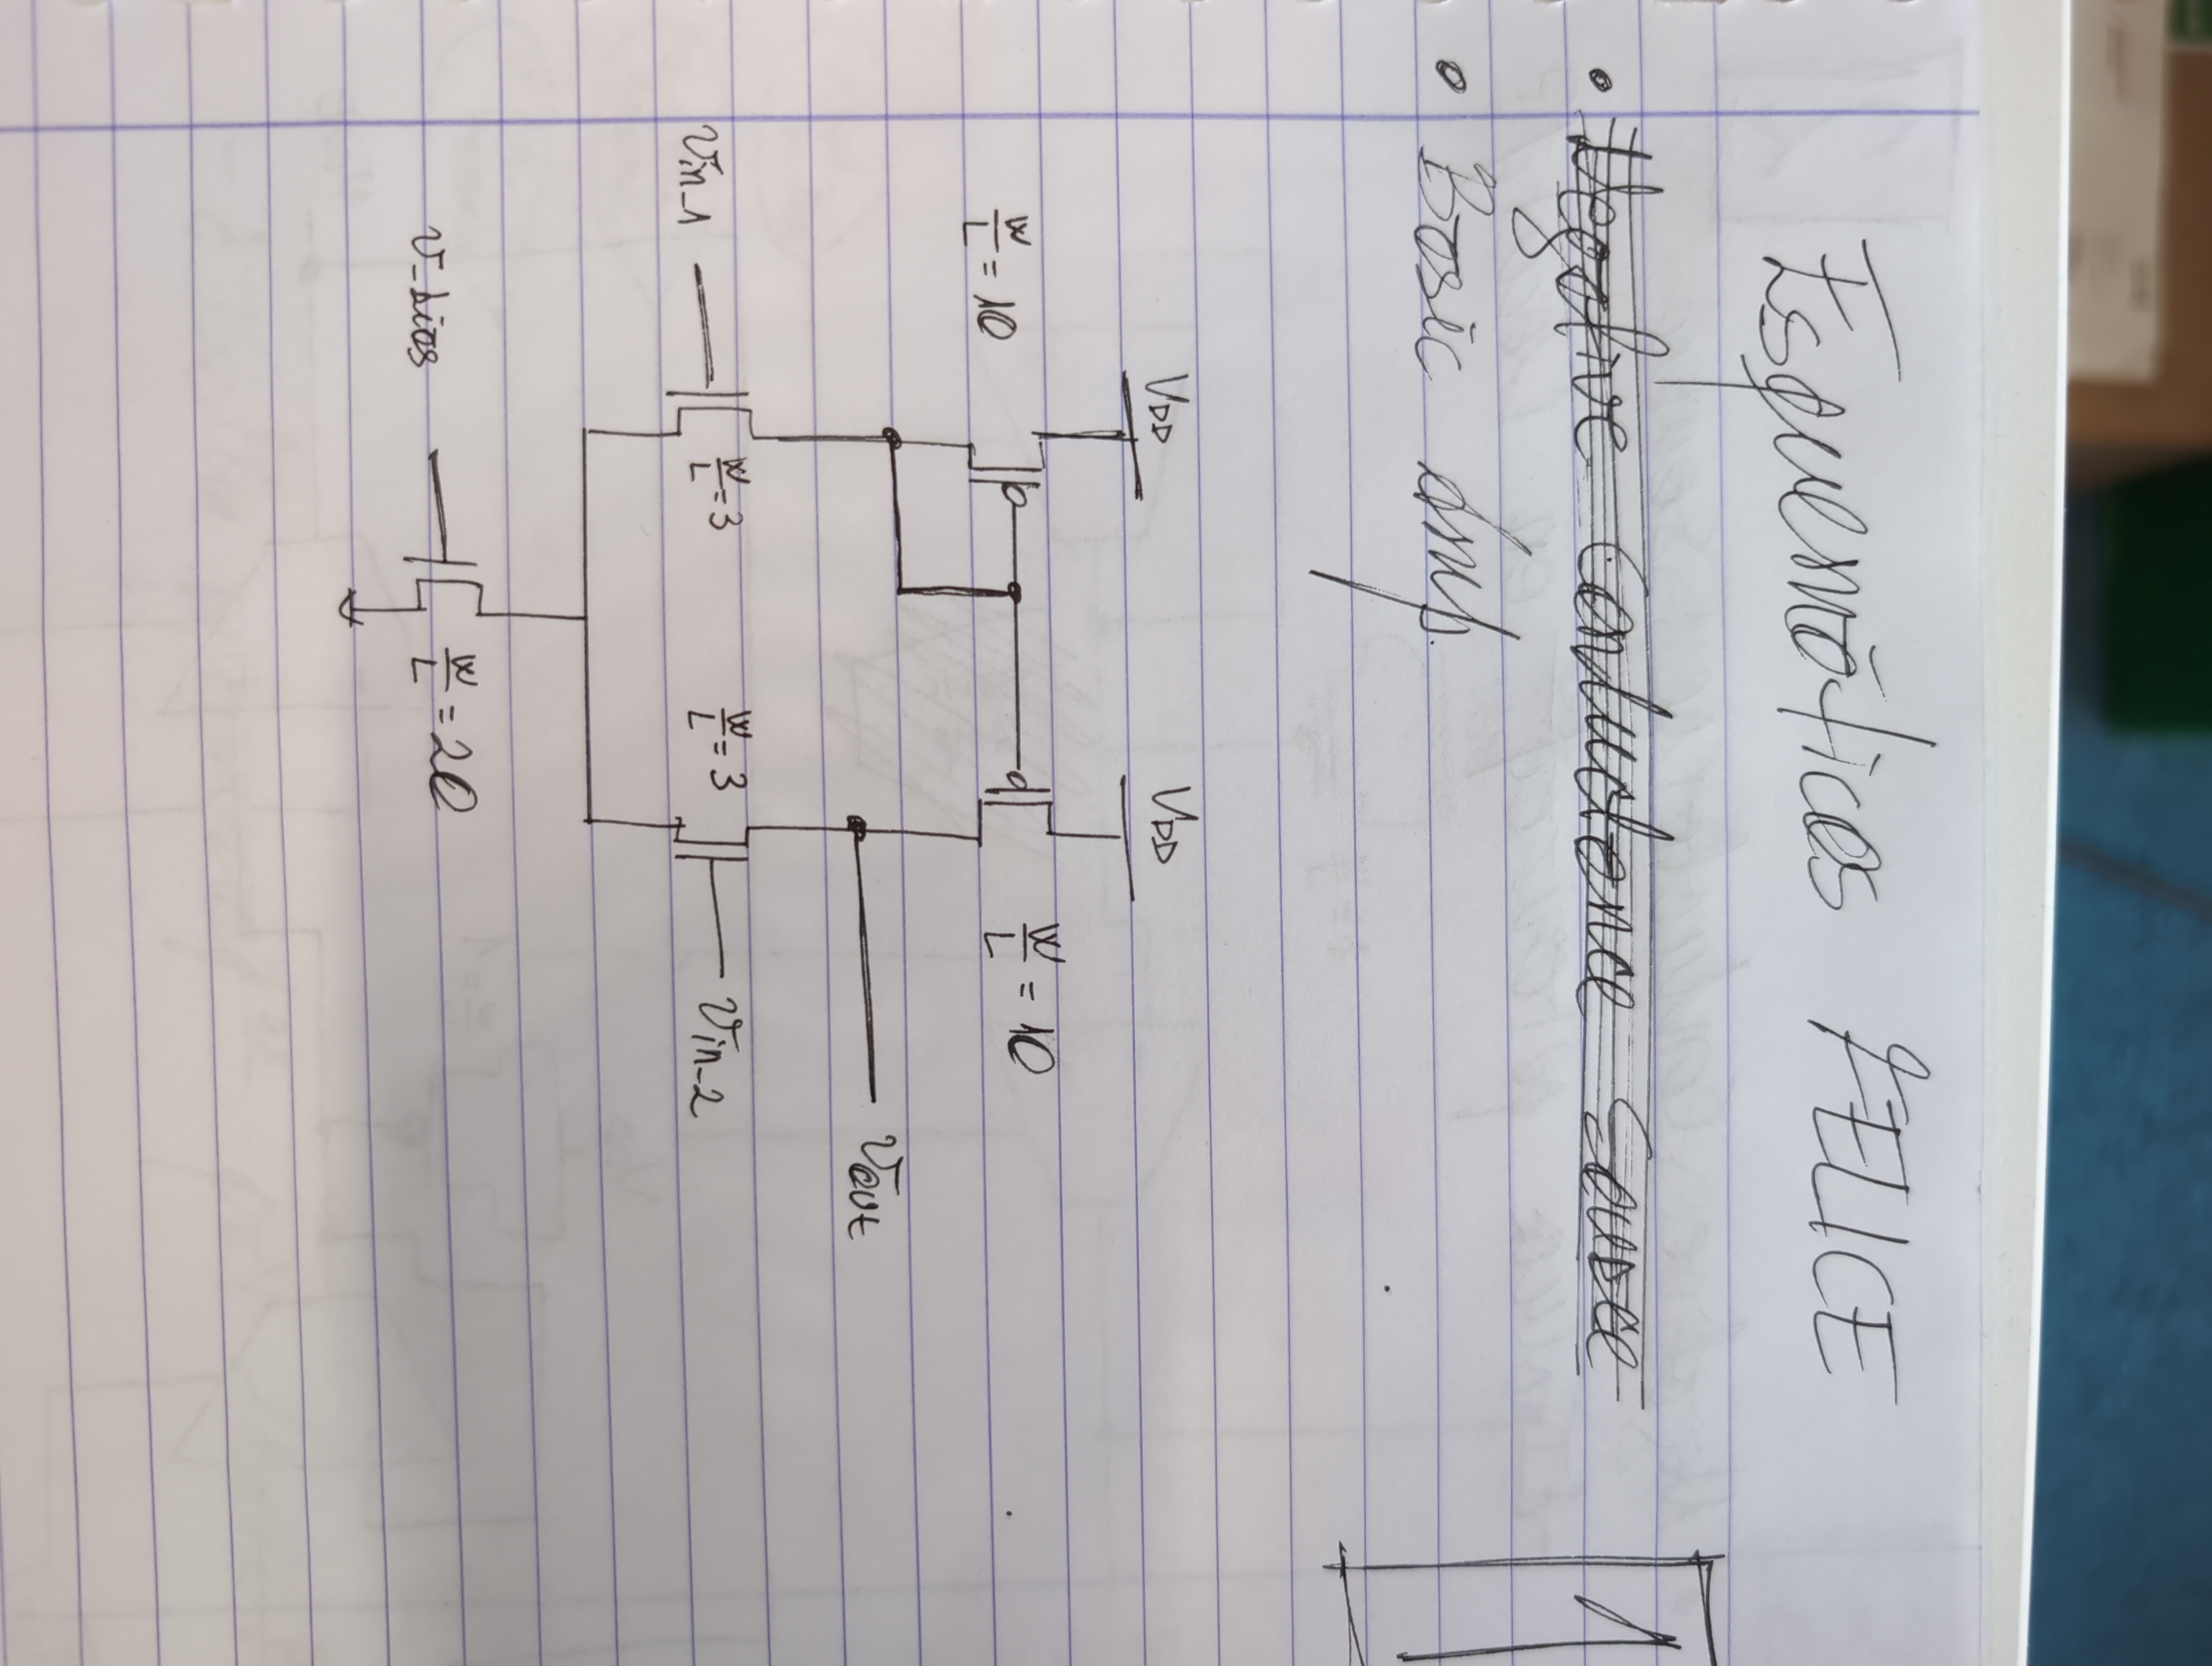 Esquemáticos AELICE
• Negative Conductance Gause
• Basic amp.
1
VDD VDD
W/L = 10 W/L = 10
Vout
Vin_1 W/L = 3 W/L = 3 Vin_2
V_bias W/L = 20